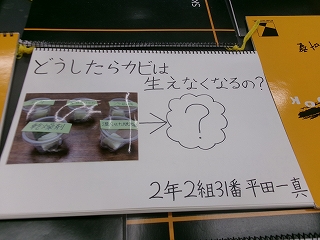 どうしたらカビは
生えなくなるの?
?
2年2組31番平田一真